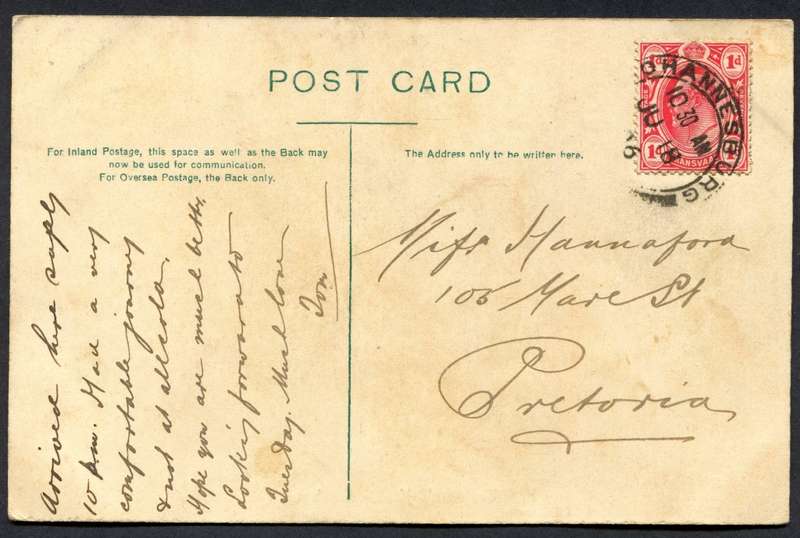 POST CARD
For Inland Postage, this space as well as the Back may
now be used for communication.
For Oversea Postage, the Back only.
The Address only to be written here.
1d 1d
1d TRANSVAAL
JOHANNESBURG
10 30 AM
JU 18
Arrived here safely
10 p.m. Had a very
comfortable journey
& not at all cold.
Hope you are much better.
Looking forward to
Tuesday. Much love
Tom
Miss Hannaford
105 Mare St
Pretoria